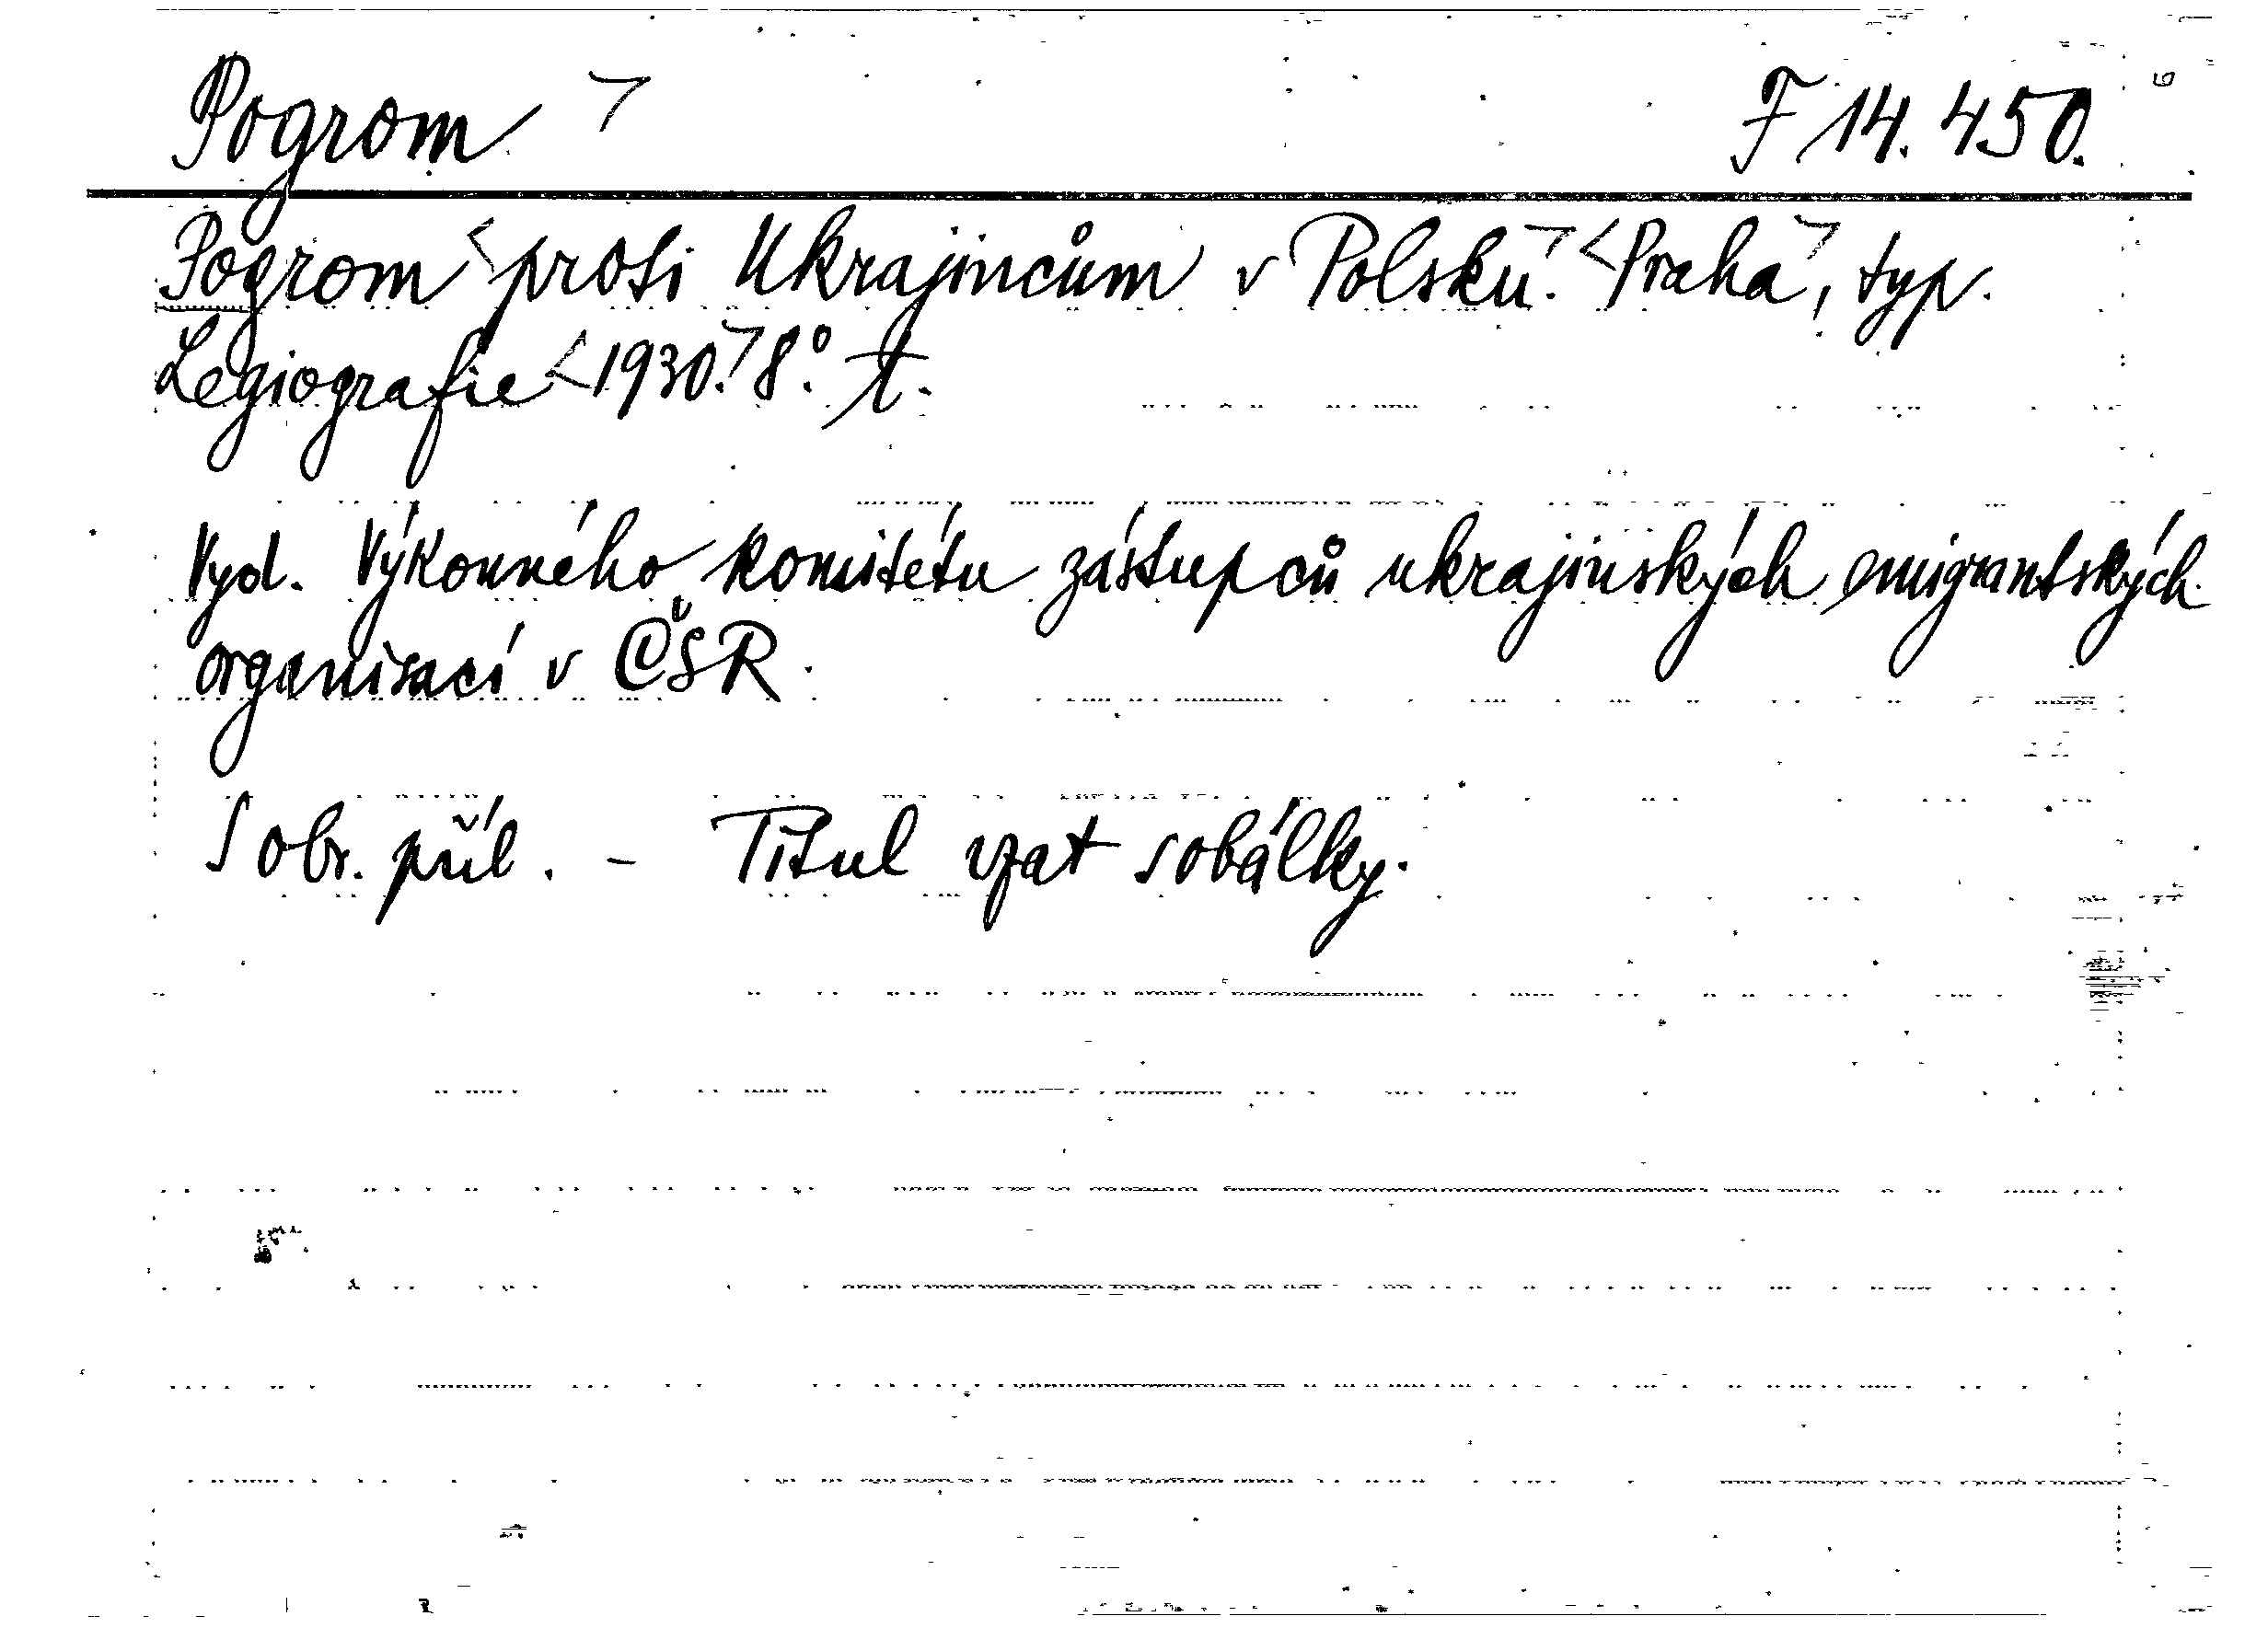 Pogrom > F 14.450.
Pogrom < proti Ukrajincům v Polsku. > < Praha >, typ.
Legiografie < 1930. > 8°. t.
Vyd. Výkonného komitétu zástupců ukrajinských emigrantských
organisací v ČSR.
S obr. příl. - Titul vzat s obálky.